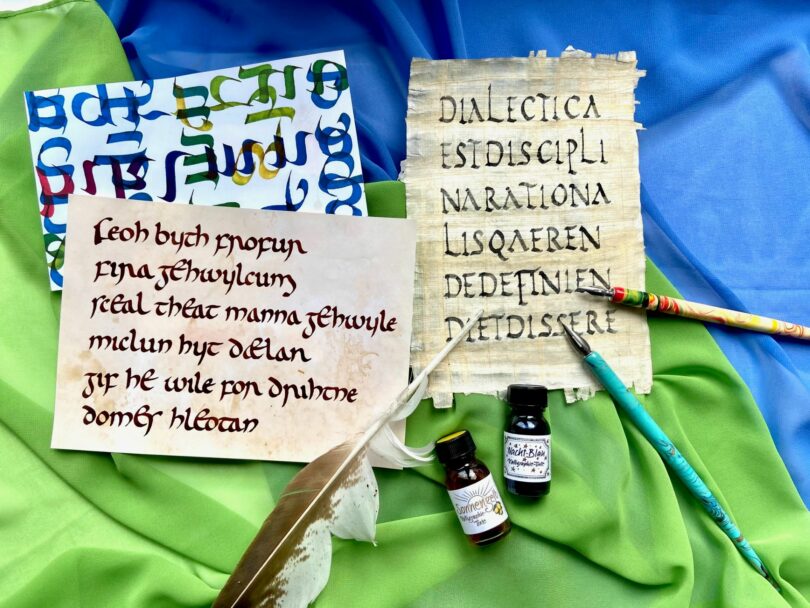 feoh byth frofur
fira gehwylcum
sceal theat manna gehwylc
miclun hyt dælan
gif he wile for drihtne
domes hleotan
DIALECTICA
ESTDISCIPLI
NARATIONA
LISQAEREN
DEDEFINIEN
DIETDISSERE
Nacht-Blau
Kalligraphie-Tinte
Sonnengelb
Kalligraphie
Tinte